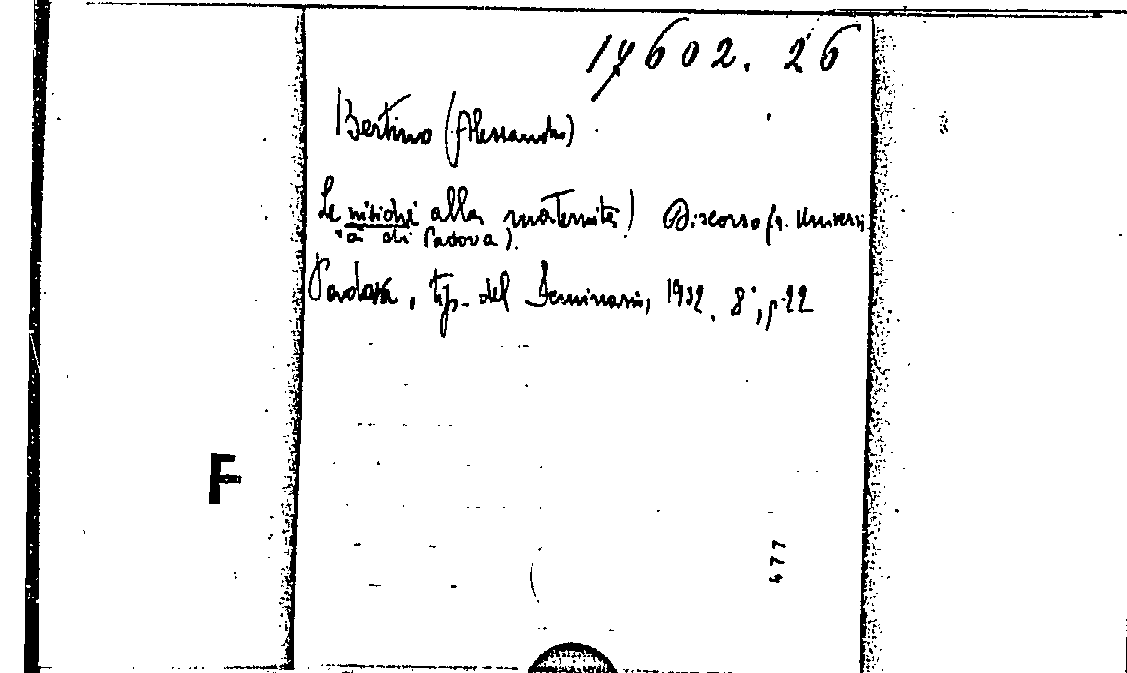 17602. 26
Bertino (Alessandro)
Le alla maternità) Discorso (R. Universi
tà di Padova).
Padova, tip. del Seminario, 1932. 8°, p. 22
F
477